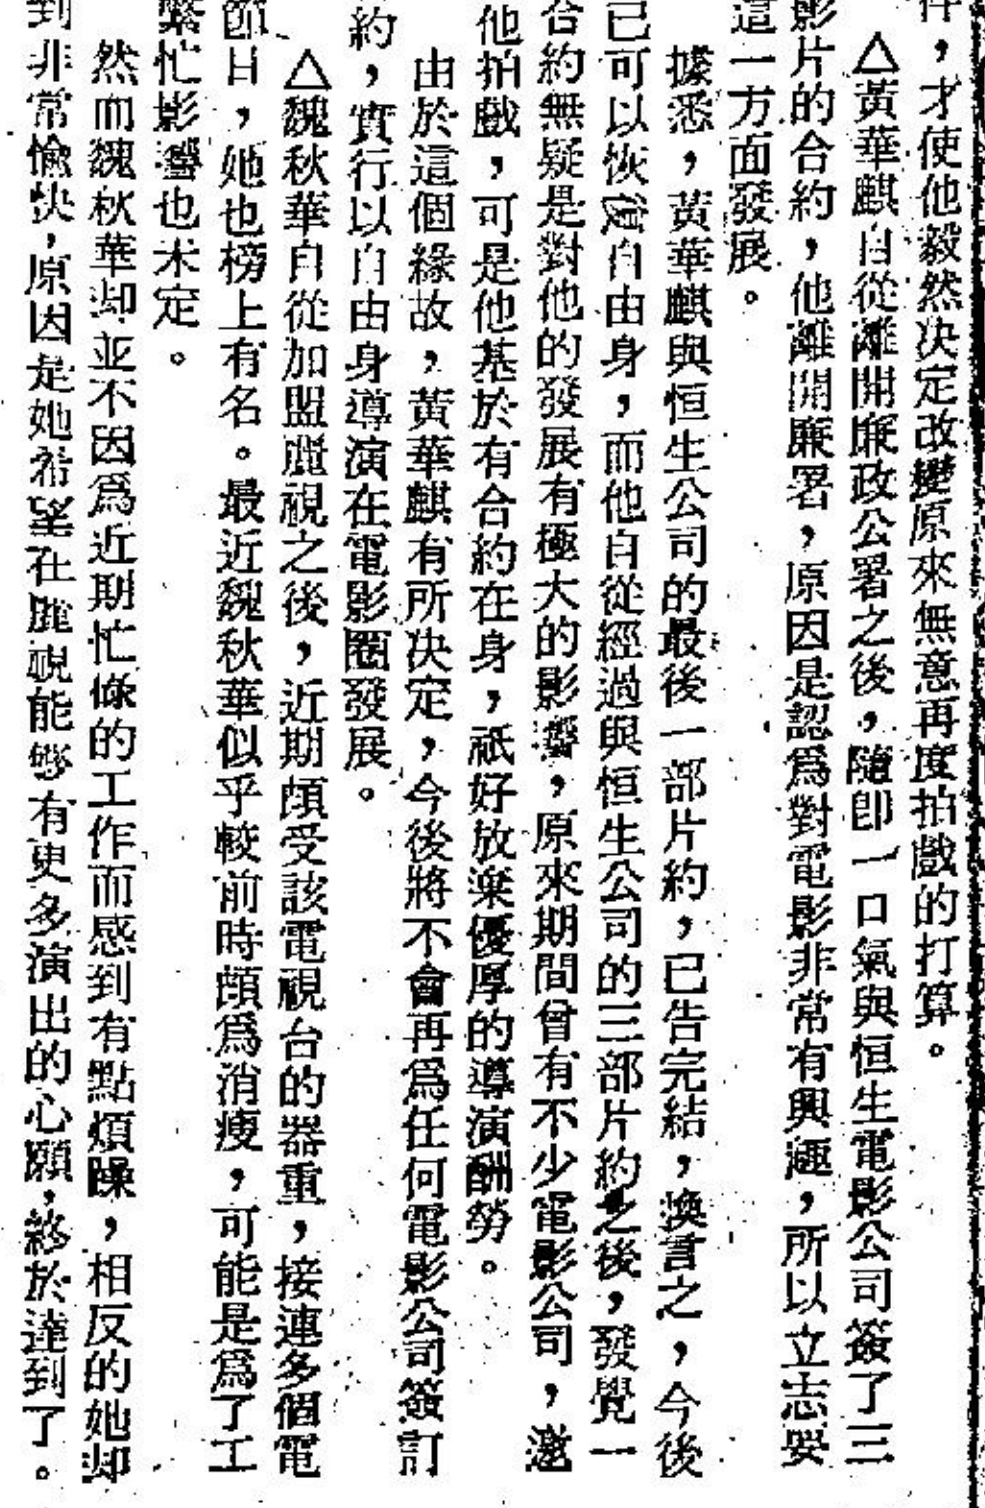 件，才使他毅然決定改變原來無意再度拍戲的打算。
△黃華麒自從離開廉政公署之後，隨即一口氣與恒生電影公司簽了三
影片的合約，他離開廉署，原因是認爲對電影非常有興趣，所以立志要
這一方面發展。
據悉，黃華麒與恒生公司的最後一部片約，已告完結，換言之，今後
已可以恢復自由身，而他自從經過與恒生公司的三部片約之後，發覺一
合約無疑是對他的發展有極大的影響，原來期間曾有不少電影公司，邀
他拍戲，可是他基於有合約在身，祇好放棄優厚的導演酬勞。
由於這個緣故，黃華麒有所決定，今後將不會再爲任何電影公司簽訂
約，實行以自由身導演在電影圈發展。
△魏秋華自從加盟麗視之後，近期頗受該電視台的器重，接連多個電
節目，她也榜上有名。最近魏秋華似乎較前時頗爲消瘦，可能是爲了工
繁忙影響也未定。
然而魏秋華却並不因爲近期忙碌的工作而感到有點煩躁，相反的她却
到非常愉快，原因是她希望在麗視能够有更多演出的心願，終於達到了。